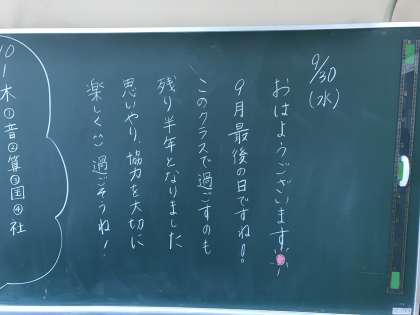 9/30
(水)
おはようございます
9月最後の日ですね!!
このクラスで過ごすのも
残り半年となりました
思いやり、協力を大切に
楽しく^^過ごそうね!
10
1
木
①音②算③国④社